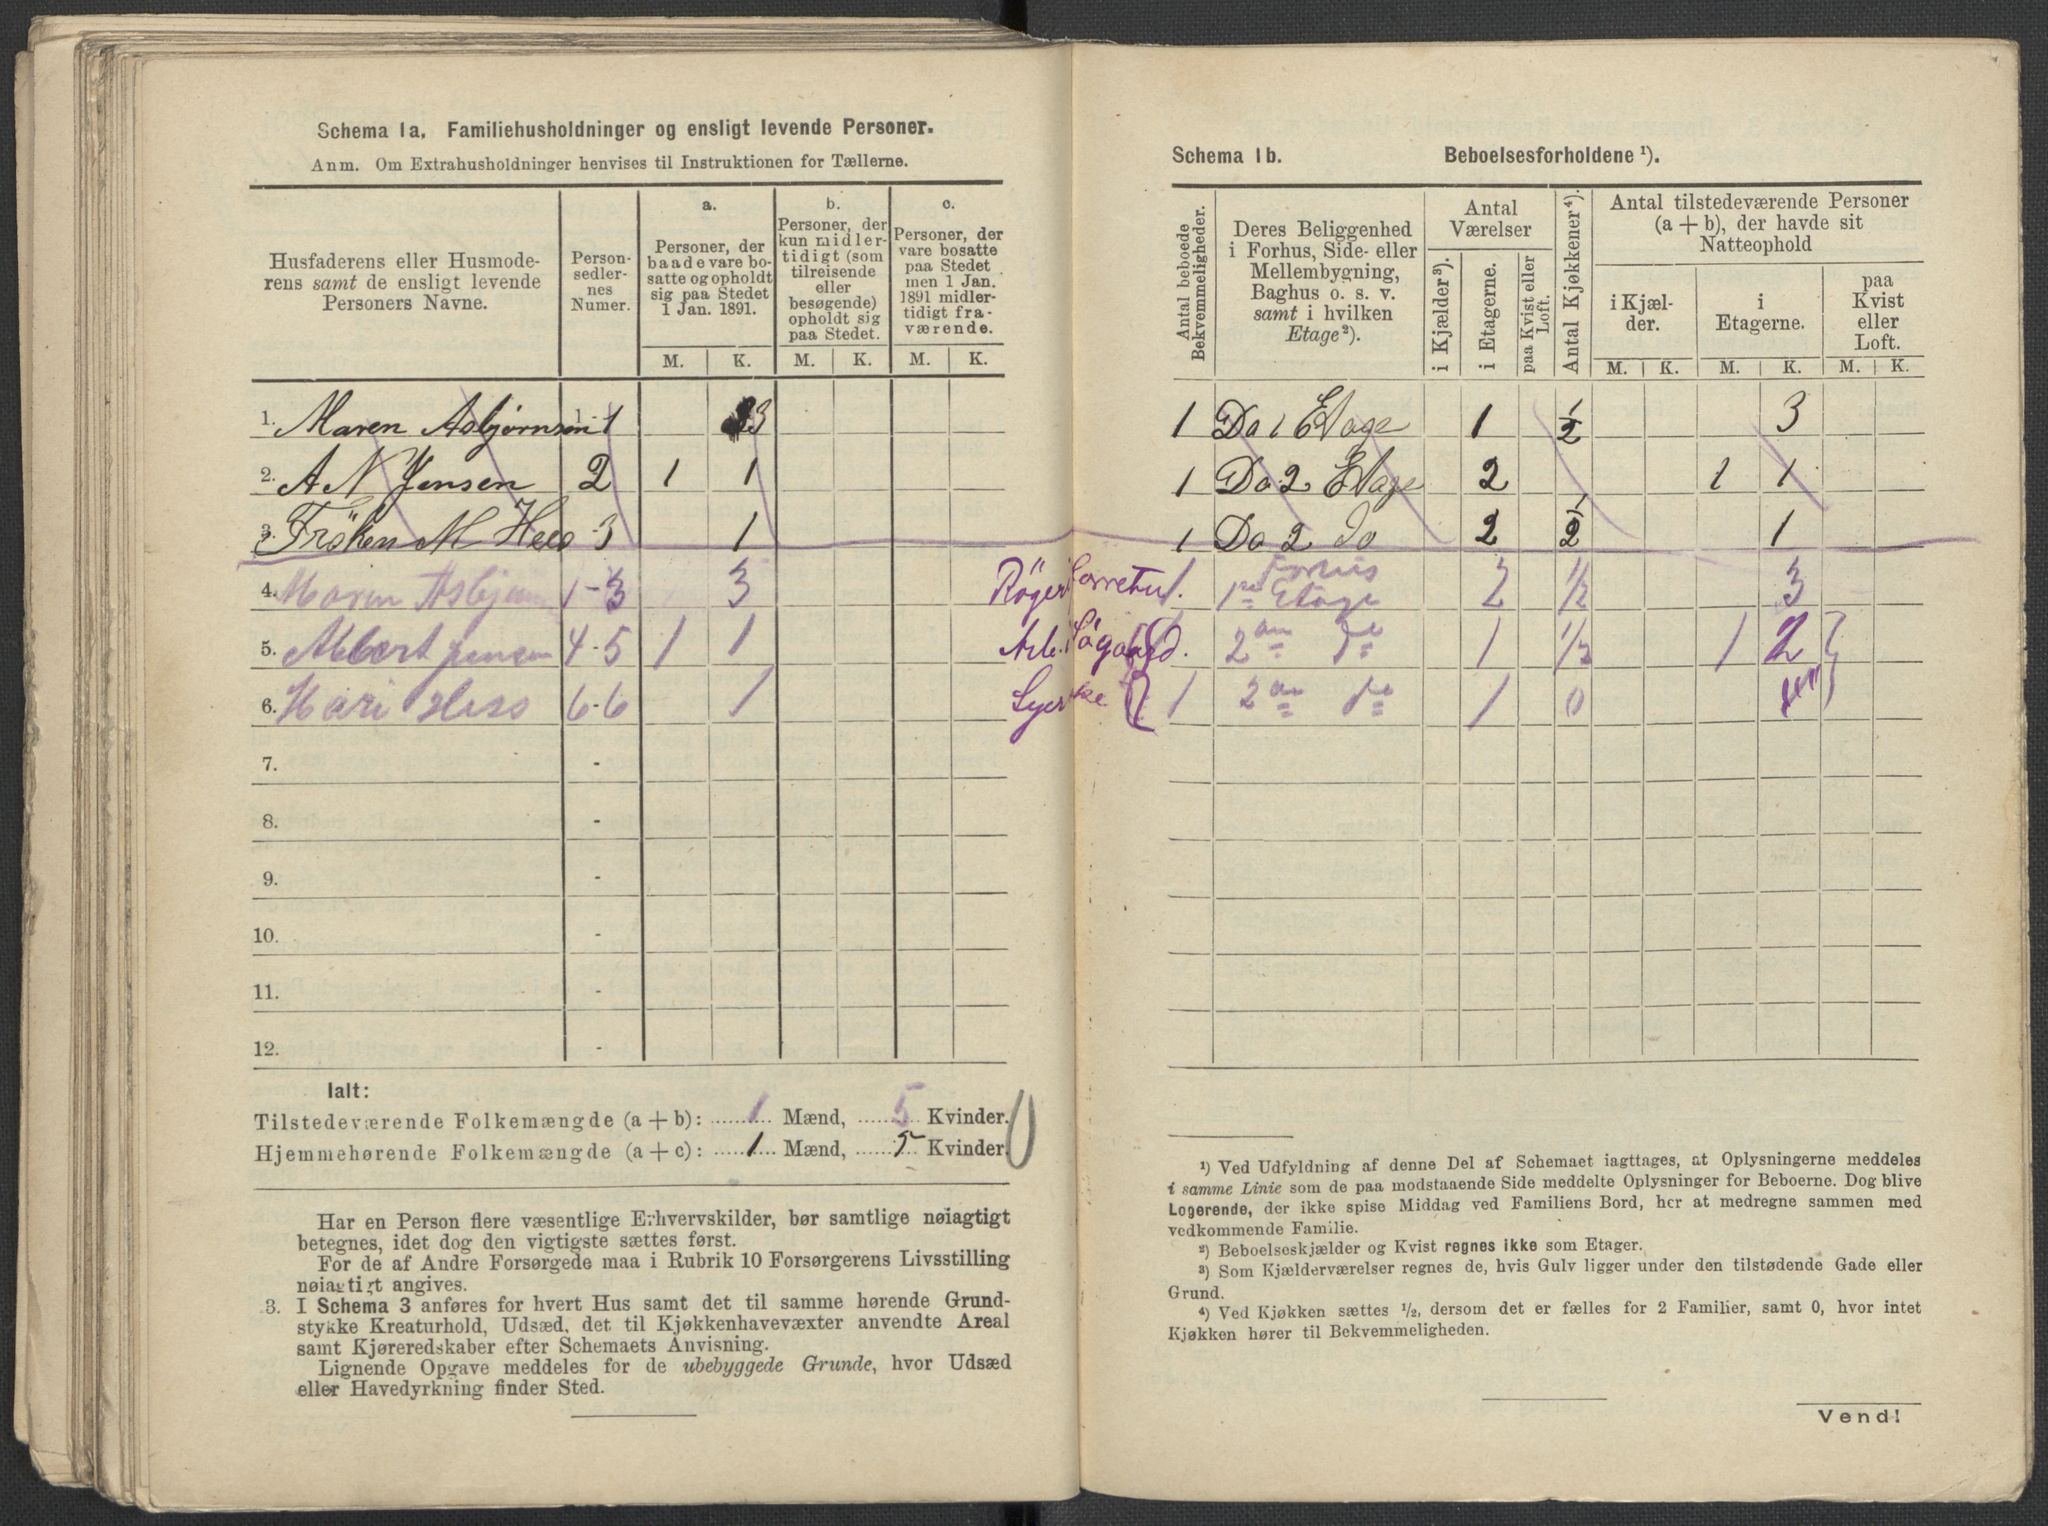 Schema 1a. Familiehusholdninger og ensligt levende Personer.
Anm. Om Extrahusholdninger henvises til Instruktionen for Tællerne.
Husfaderens eller Husmode-
rens samt de ensligt levende
Personers Navne.
Person-
sedler-
nes
Numer.
a.
Personer, der
baade vare bo-
satte og opholdt
sig paa Stedet
1 Jan. 1891.
b.
Personer, der
kun midler-
tidigt (som
tilreisende
eller
besøgende)
opholdt sig
paa Stedet.
c.
Personer, der
vare bosatte
paa Stedet
men 1 Jan.
1891 midler-
tidigt fra-
værende.
M. K. M. K. M. K.
1. Maren Asbjørnsen 1-1 3
2. A N Jensen 2 1 1
3. Frøken M Hess -3 1
4. Maren Asbjørn 1-3 3
5. Albert Jensen 4-5 1 1
6. Mari Hess 6-6 1
7. -
8. -
9. -
10. -
11. -
12. -
Ialt:
Tilstedeværende Folkemængde (a + b): 1 Mænd, 5 Kvinder.
Hjemmehørende Folkemængde (a + c): 1 Mænd, 5 Kvinder.
Har en Person flere væsentlige Erhvervskilder, bør samtlige nøiagtigt
betegnes, idet dog den vigtigste sættes først.
For de af Andre Forsørgede maa i Rubrik 10 Forsørgerens Livsstilling
nøiagtigt angives.
3. I Schema 3 anføres for hvert Hus samt det til samme hørende Grund-
stykke Kreaturhold, Udsæd, det til Kjøkkenhavevæxter anvendte Areal
samt Kjøreredskaber efter Schemaets Anvisning.
Lignende Opgave meddeles for de ubebyggede Grunde, hvor Udsæd
eller Havedyrkning finder Sted.
Schema 1b. Beboelsesforholdene ¹).
Antal beboede
Bekvemmeligheder.
Deres Beliggenhed
i Forhus, Side- eller
Mellembygning,
Baghus o. s. v.
samt i hvilken
Etage²).
Antal
Værelser
i Kjælder³).
i Etagerne.
paa Kvist eller
Loft.
Antal Kjøkkener⁴).
Antal tilstedeværende Personer
(a + b), der havde sit
Natteophold
i Kjæl-
der.
i
Etagerne.
paa
Kvist
eller
Loft.
M. K. M. K. M. K.
1 Do 1 Etage 1 1/2 3
1 Do 2 Etage 2 1 1
1 Do 2 Do 2 1/2 1
1. Forhus
1ste Etage 2 1/2 3
2den Do 1 1/2 1 2
1 2den Do 1 0
¹) Ved Udfyldning af denne Del af Schemaet iagttages, at Oplysningerne meddeles
i samme Linie som de paa modstaaende Side meddelte Oplysninger for Beboerne. Dog blive
Logerende, der ikke spise Middag ved Familiens Bord, her at medregne sammen med
vedkommende Familie.
²) Beboelseskjælder og Kvist regnes ikke som Etager.
³) Som Kjælderværelser regnes de, hvis Gulv ligger under den tilstødende Gade eller
Grund.
⁴) Ved Kjøkken sættes ½, dersom det er fælles for 2 Familier, samt 0, hvor intet
Kjøkken hører til Bekvemmeligheden.
Vend!